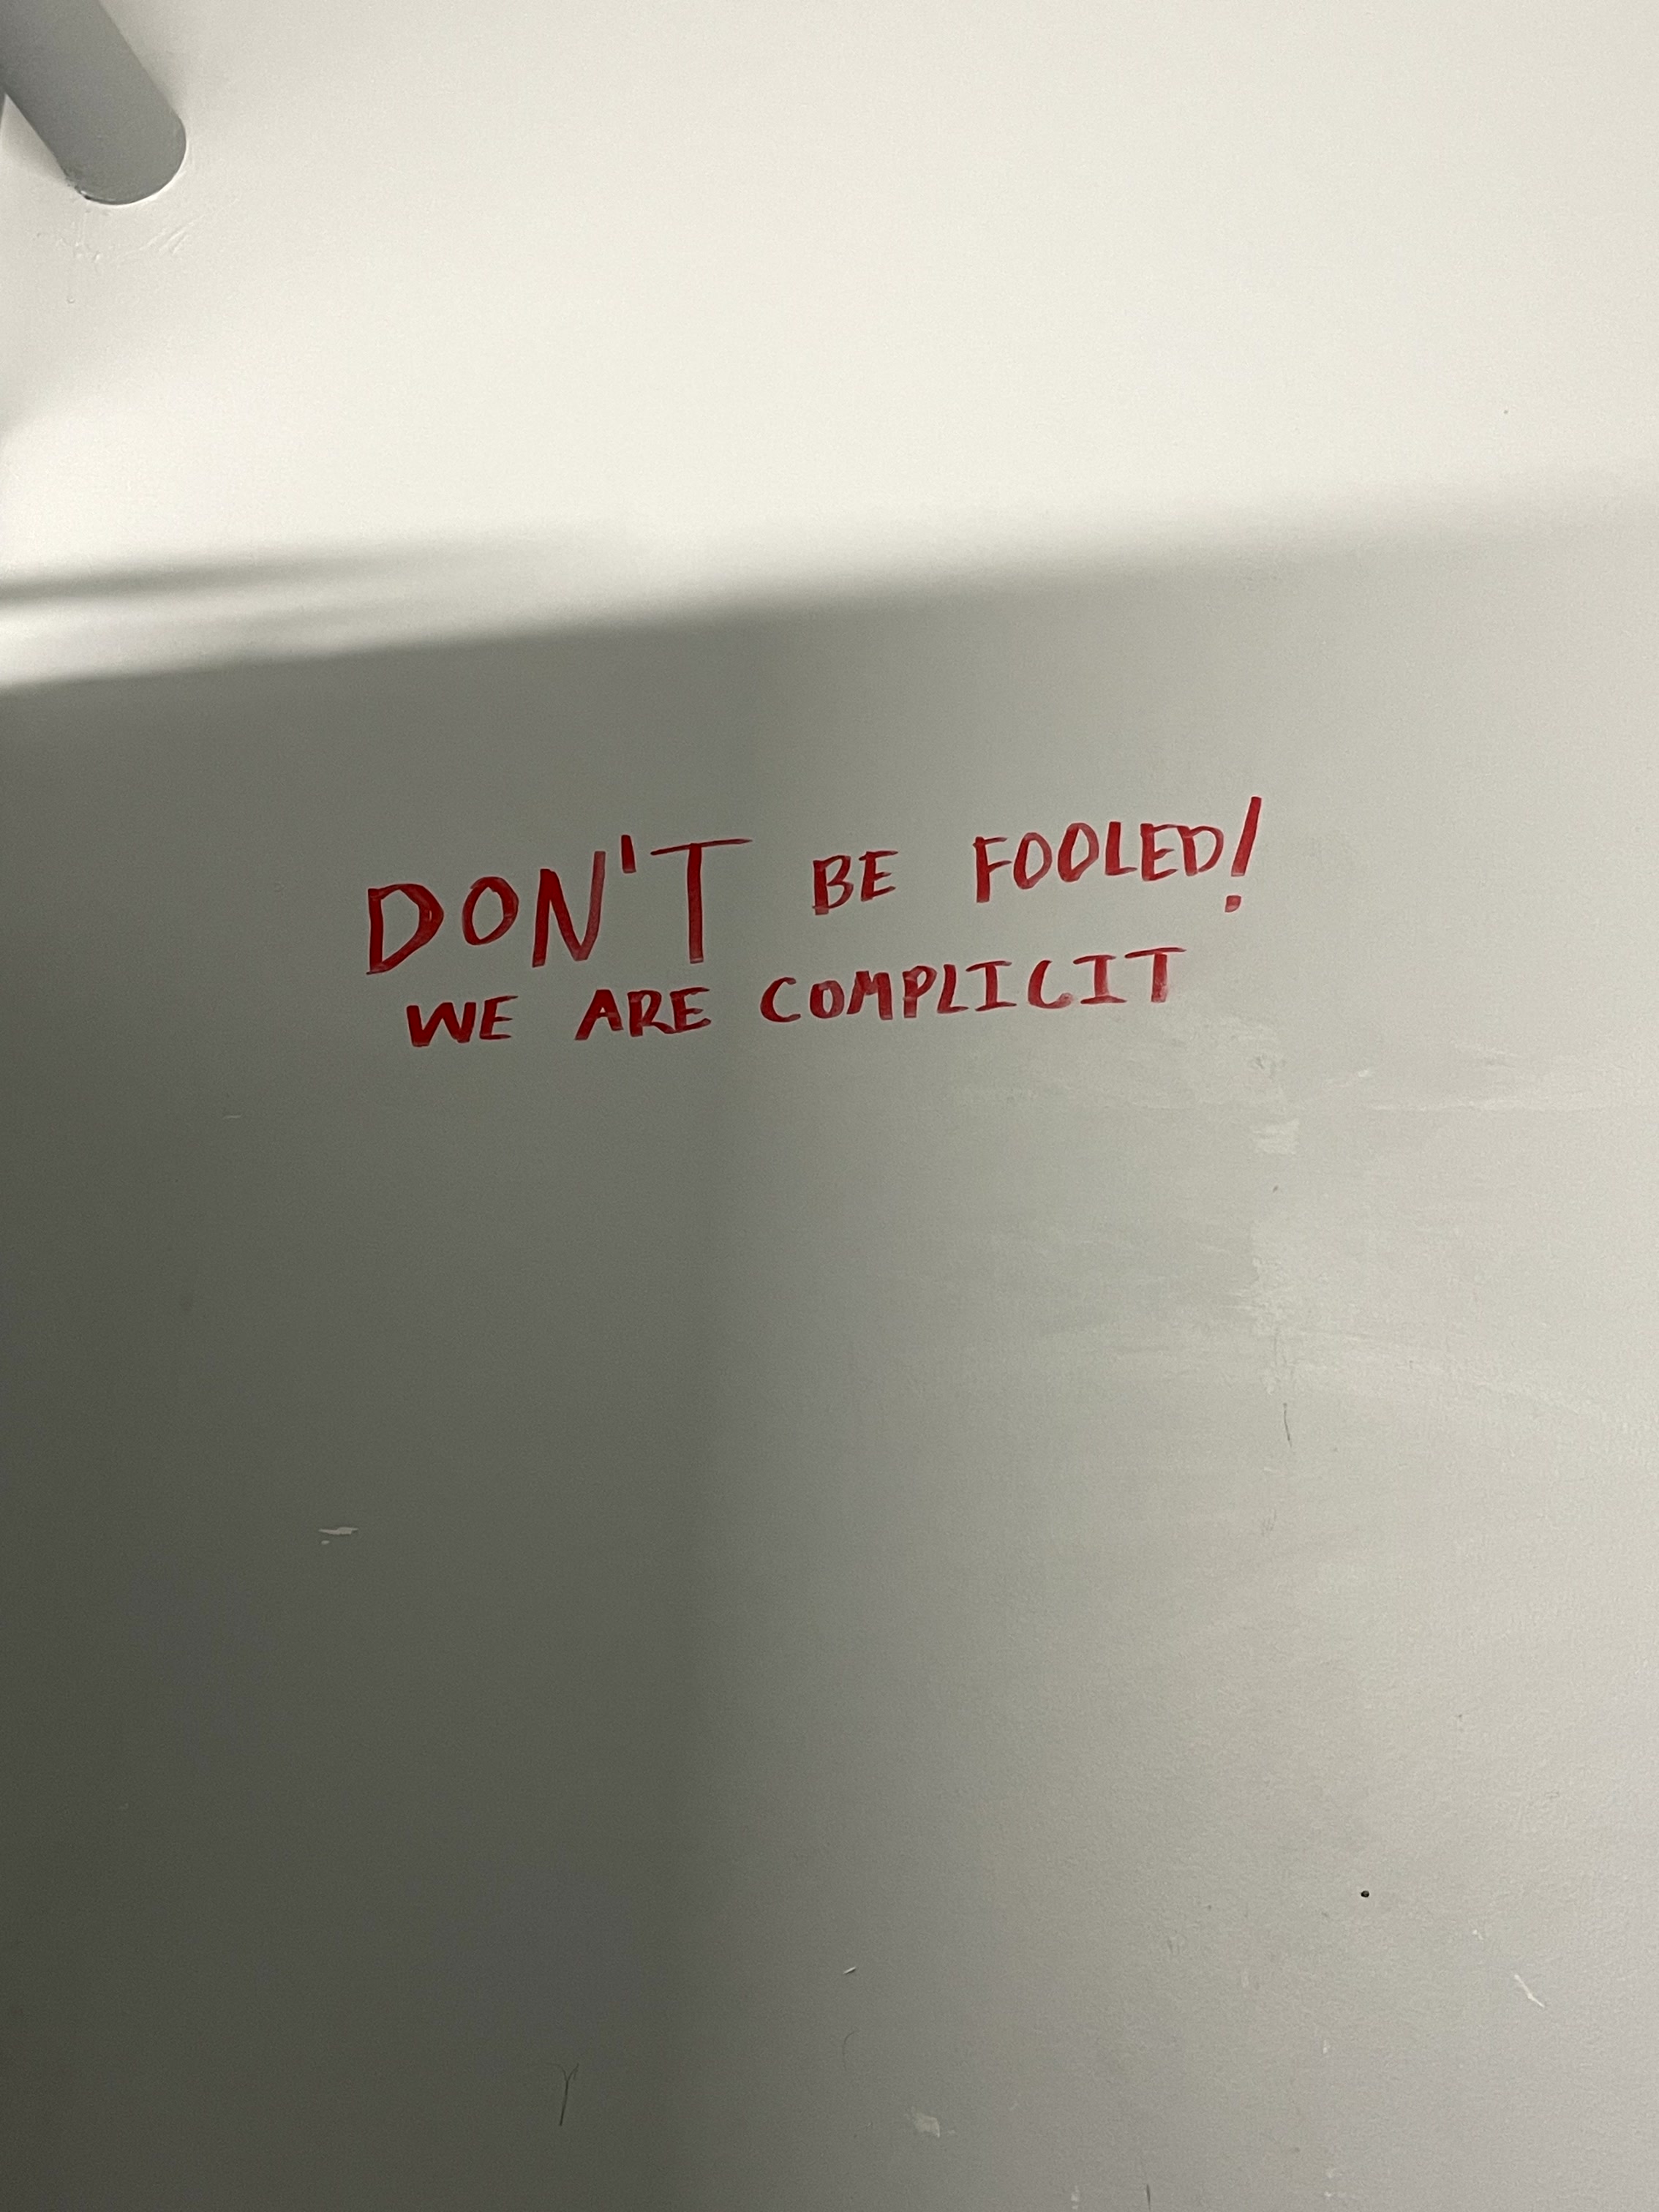 DON'T BE FOOLED!
WE ARE COMPLICIT